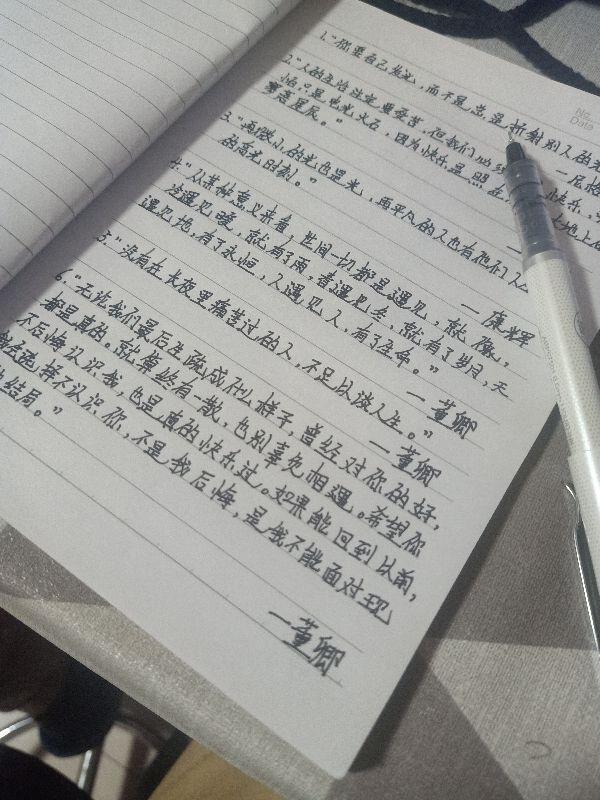 No.
Date
1.“你要自己发光，而不是总是折射别人的光
—尼格
2.“人的生活注定要受苦，但我们
快乐，
恰只是电光火石，因为快乐是照在
大地上的
寥落星辰。”
3.“再微小的光也是光，再平凡的人也有他们人
的高光时刻。”
—康辉
4.“从某种意义来看，世间一切都是遇见，就像，
冷遇见暖，就有了雨，春遇见冬，就有了岁月，天
遇见地，有了永恒，人遇见人，有了生命。”
—董卿
5.“没有在长夜里痛苦过的人，不足以谈人生。”
—董卿
6.“无论我们最后生疏成什么样子，曾经对你的好，
都是真的。就算终有一散，也别辜负相遇。希望你
不后悔认识我，也是真的快乐过。如果能回到以前，
选择不认识你，不是我后悔，是我不能面对现
结局。”
—董卿